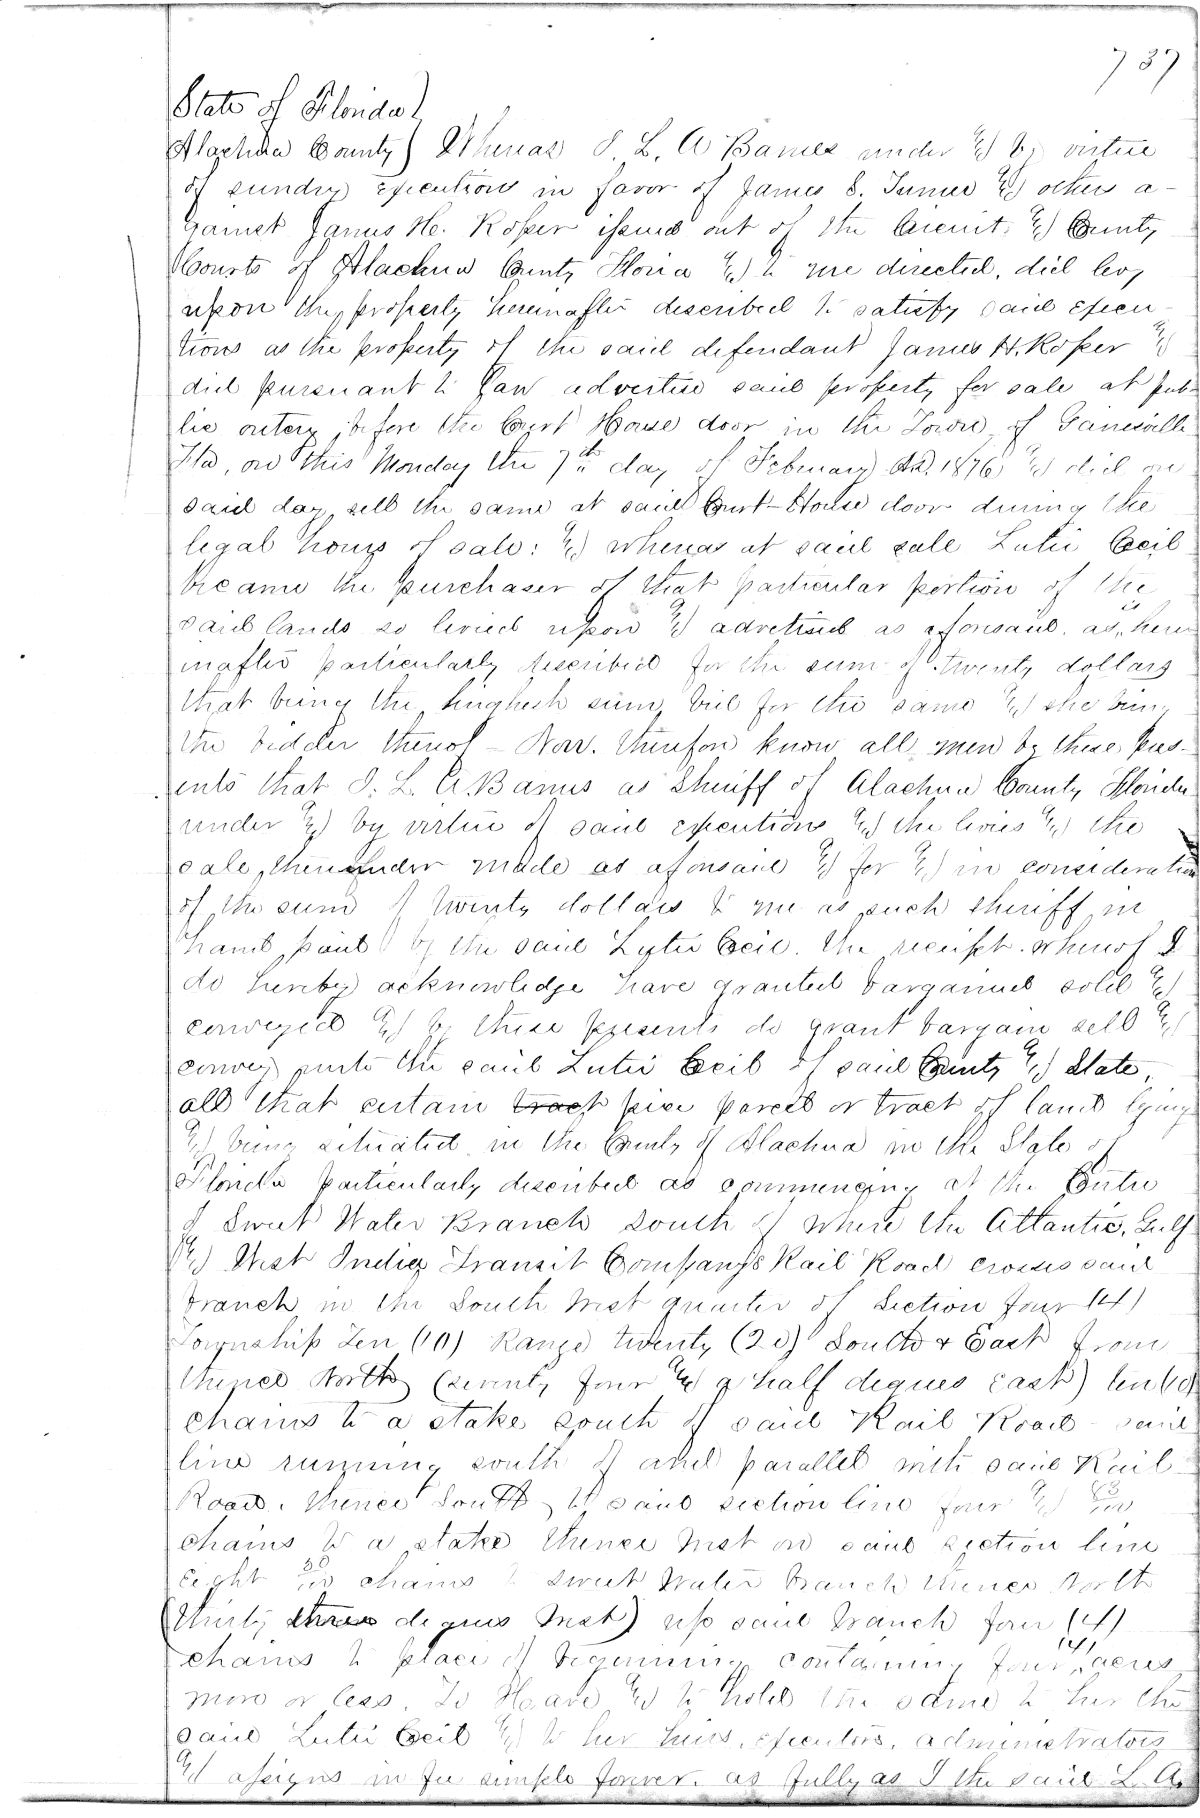 737
State of Florida)
Alachua County) Whereas I. L. A Barnes under & by virtue
of sundry executions in favor of James S. Turner & others a-
gainst James H. Roper issued out of the Circuit & County
Courts of Alachua County Floria & to me directed, did levy
upon the property hereinafter described to satisfy said execu-
tions as the property of the said defendant James H. Roper &
did pursuant to Law advertise said property for sale at pub-
lic outcry before the Court House door in the Town of Gainesville
Fla, on this Monday the 7th day of February AD. 1876 & did on
said day sell the same at said Court-House door during the
legal hours of sale: & whereas at said sale Lutie Cecil
became the purchaser of that particular portion of the
said lands so levied upon & advetised as aforesaid. as is here
inafter particularly described for the sum of twenty dollars
that being the hinghesh sum bid for the same & she being
the bidder thereof - Now. therefore know all men by these pres-
ents that I. L. A. Barnes as Sheriff of Alachua County Florida
under & by virtue of said executions & the levies & the
sale thereunder made as aforesaid & for & in consideration
of the sum of twenty dollars to me as such sheriff in
hand paid by the said Lutie Cecil. the receipt whereof I
do hereby acknowledge have granted bargained sold &
conveyed & by these presents do grant bargain sell &
convey unto the said Lutie Cecil of said County & State,
all that certain tract piece parcel or tract of land lying
& being situated in the County of Alachua in the State of
Florida particularly described as commencing at the Centre
of Sweet Water Branch south of where the Atlantic, Gulf
& West Indies Transit Company's Rail Road crosses said
branch in the South West quarter of Section four (4)
Township Ten (10) Range twenty (20) South & East from
thence North (seventy four & a half degrees East) ten (10)
chains to a stake south of said Rail Road - said
line running south of and parallel with said Rail
Road. thence South to said section line four &
chains to a stake thence West on said section line
Eight 50/100 chains to sweet Water branch thence North
(thirty three degrees West) up said branch four (4)
chains to place of beginning containing four (4) acres
more or less. To Have & to hold the same to her the
said Lutie Cecil & to her heirs, executors, administrators
& assigns in fee simple forever. as fully as I the said L. A.